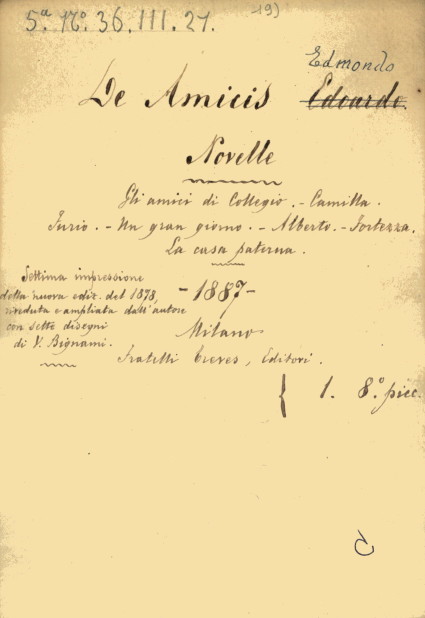 5ª Nº 36. III. 21.
19)
Edmondo
De Amicis Edoardo.
Novelle
Gli amici di Collegio. - Camilla.
Furio. - Un gran giorno. - Alberto. - Fortezza.
La casa paterna.
Settima impressione
della nuova ediz. del 1878,
riveduta e ampliata dall'autore
con sette disegni
di V. Bignami.
- 1887 -
Milano
Fratelli Treves, Editori.
{ 1. 8.° picc.